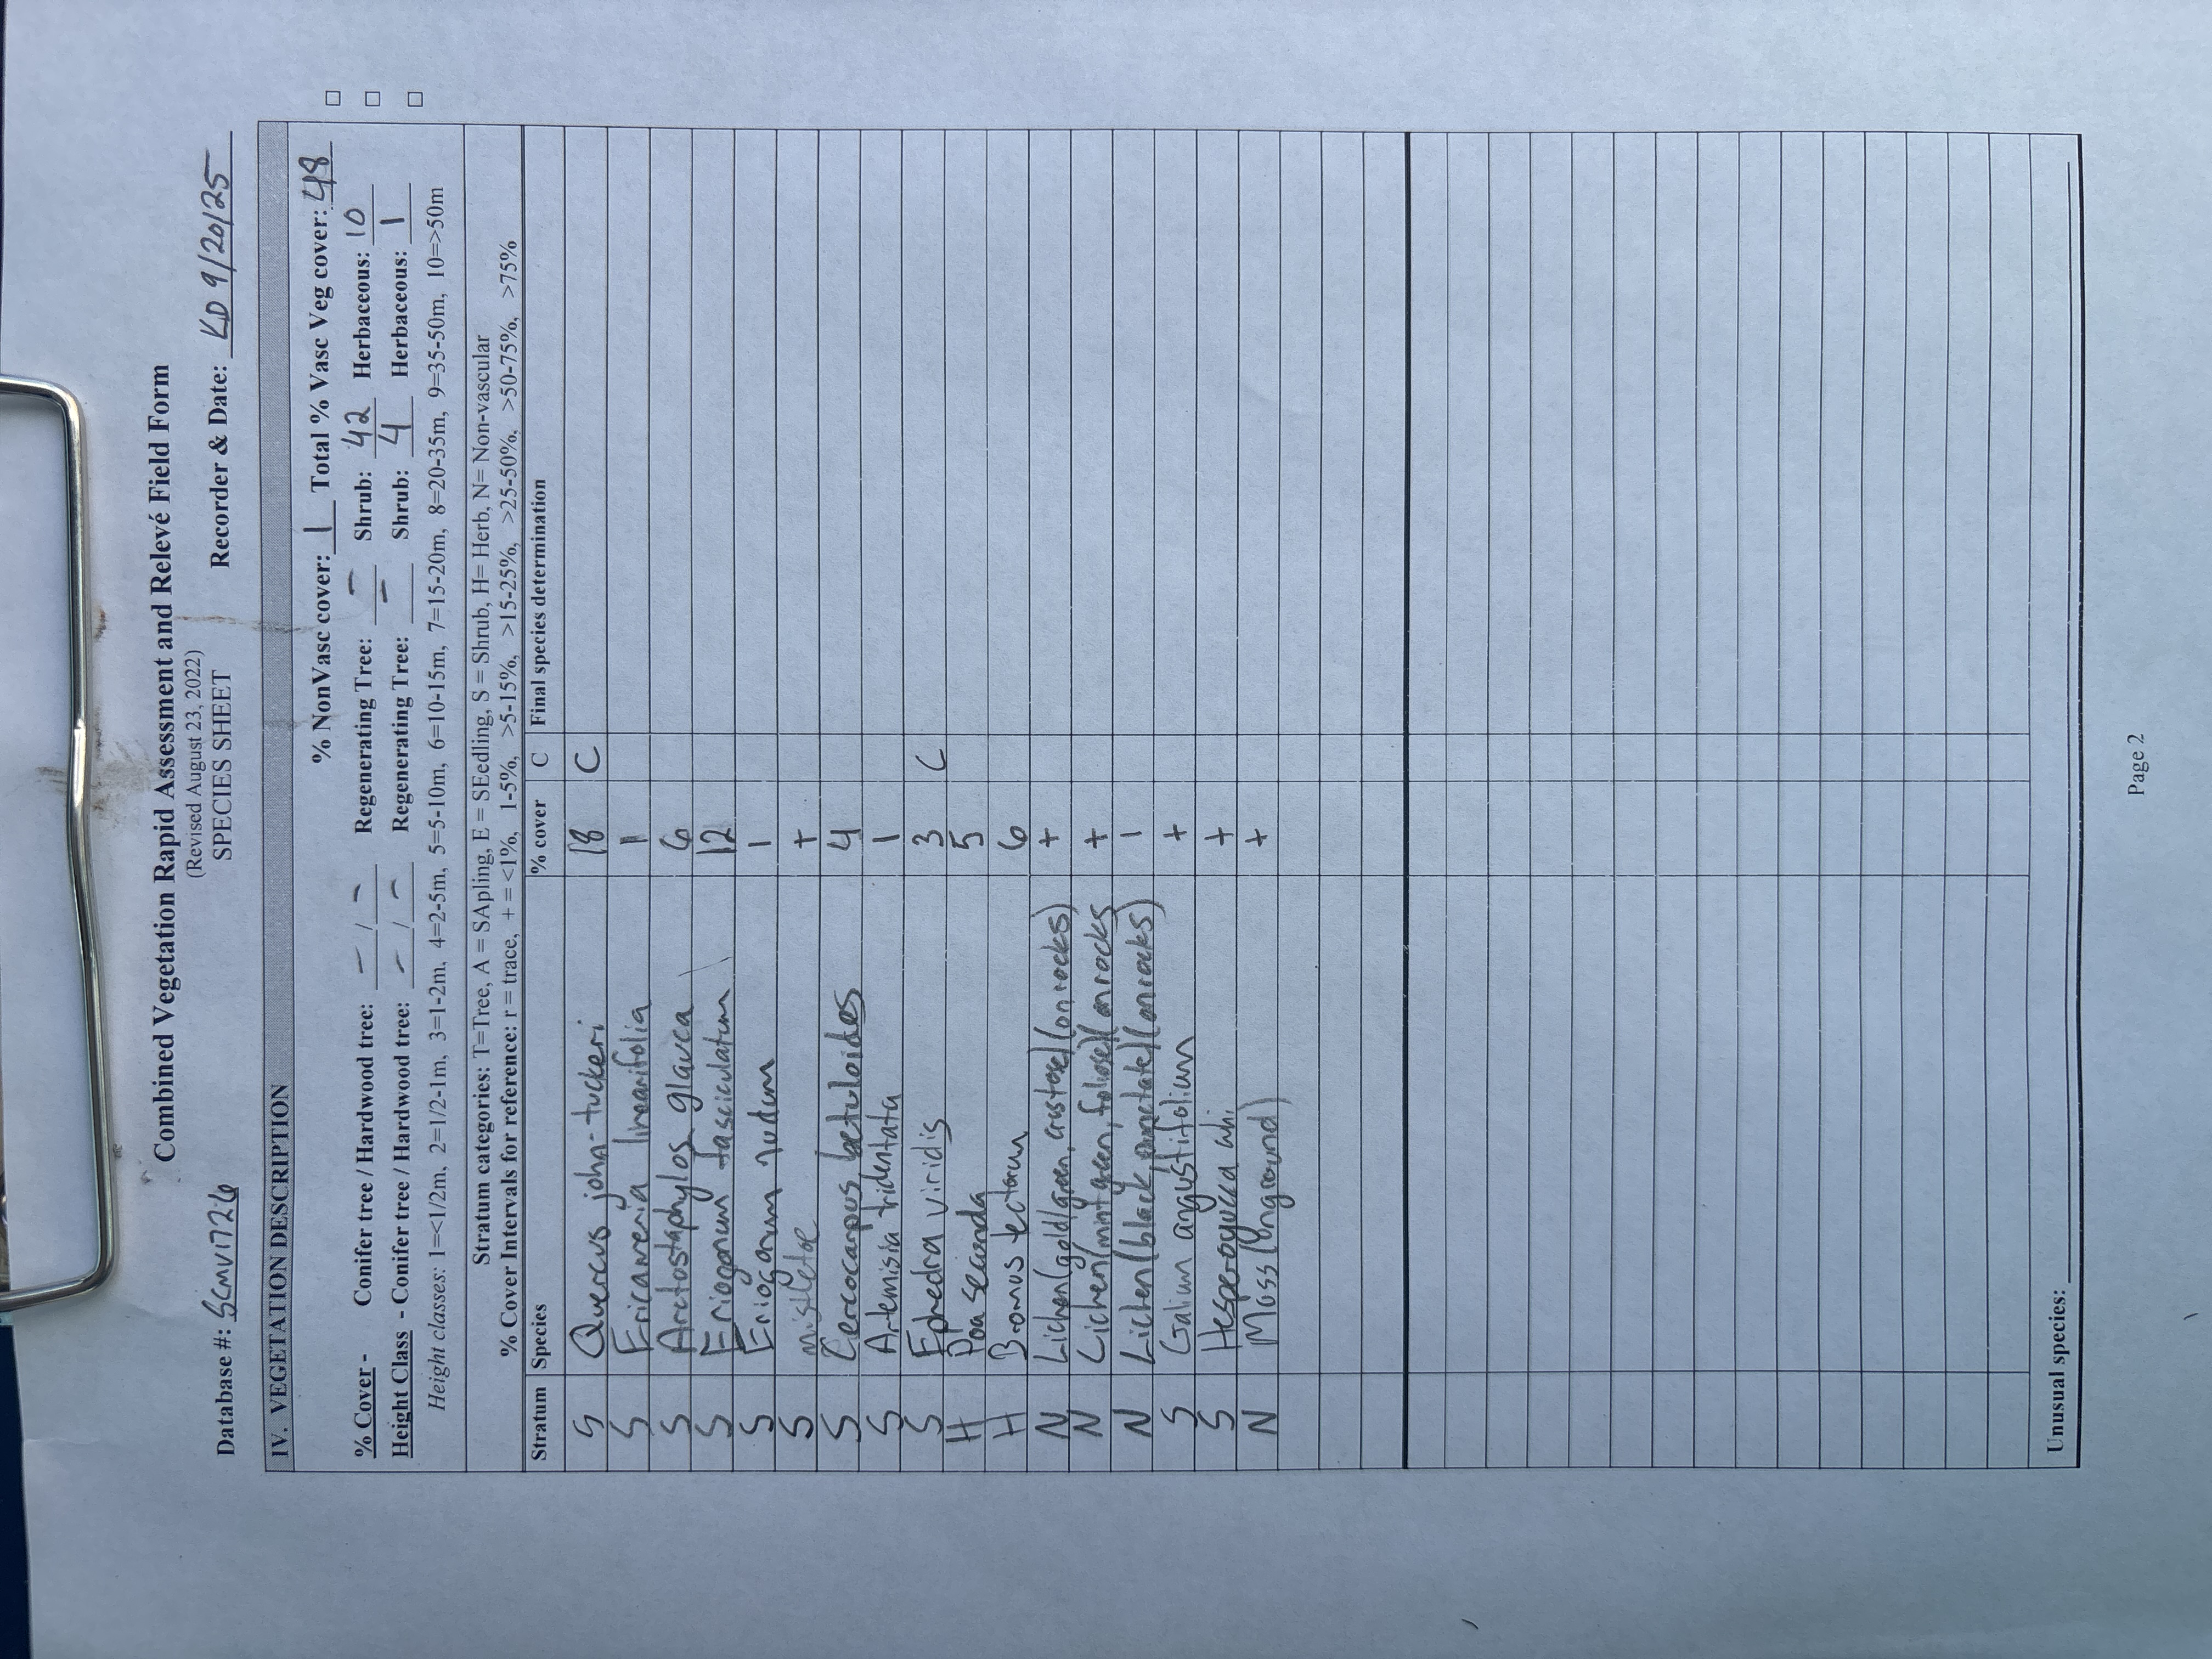 Combined Vegetation Rapid Assessment and Relevé Field Form
(Revised August 23, 2022)
Database #: SCMV1726 SPECIES SHEET Recorder & Date: KD 9/20/25
IV. VEGETATION DESCRIPTION
% NonVasc cover: 1 Total % Vasc Veg cover: 48
% Cover - Conifer tree / Hardwood tree: - / - Regenerating Tree: - Shrub: 42 Herbaceous: 10
Height Class - Conifer tree / Hardwood tree: - / - Regenerating Tree: - Shrub: 4 Herbaceous: 1
Height classes: 1=<1/2m, 2=1/2-1m, 3=1-2m, 4=2-5m, 5=5-10m, 6=10-15m, 7=15-20m, 8=20-35m, 9=35-50m, 10=>50m
Stratum categories: T=Tree, A = SApling, E = SEedling, S = Shrub, H= Herb, N= Non-vascular
% Cover Intervals for reference: r = trace, + = <1%, 1-5%, >5-15%, >15-25%, >25-50%, >50-75%, >75%
Stratum Species % cover C Final species determination
S Quercus john-tuckeri 18 C
S Ericameria linearifolia 1
S Arctostaphylos glauca 6
S Eriogonum fasciculatum 12
S Eriogonum nudum 1
S mistletoe +
S Cercocarpus betuloides 4
S Artemisia tridentata 1
S Ephedra viridis 3 C
H Poa secunda 5
H Bromus tectorum 6
N Lichen (gold/green, crustose) (on rocks) +
N Lichen (mint green, foliose) (on rocks +
N Lichen (black, (on rocks) 1
S Galium angustifolium +
S Hesperoyucca whi +
N Moss (on ground) +
Unusual species:
Page 2